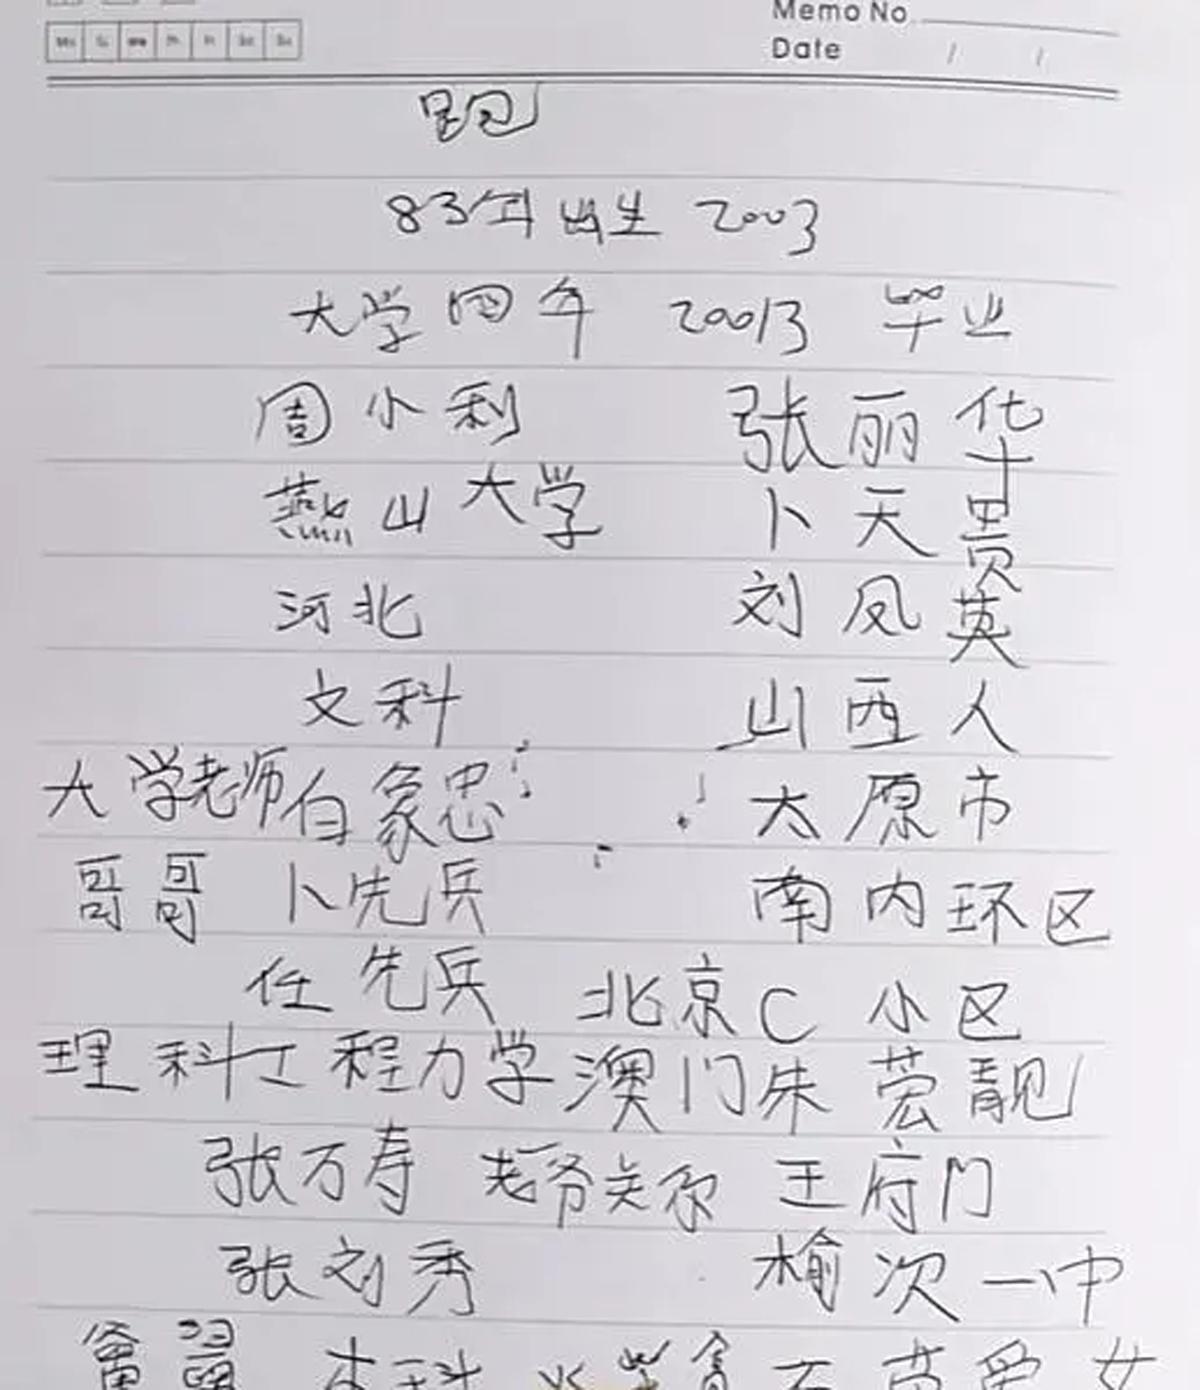 Memo No.
Date / /
83年出生 2003
大学四年 20013 毕业
周小利 张丽华
燕山大学 卜天贵
河北 刘凤英
文科 山西人
大学老师白象忠 太原市
哥哥 卜先兵 南内环区
任先兵 北京C小区
理科工程力学 澳门朱蕓靓
张万寿 老爷关系 王府门
张刘秀 榆次一中
本科